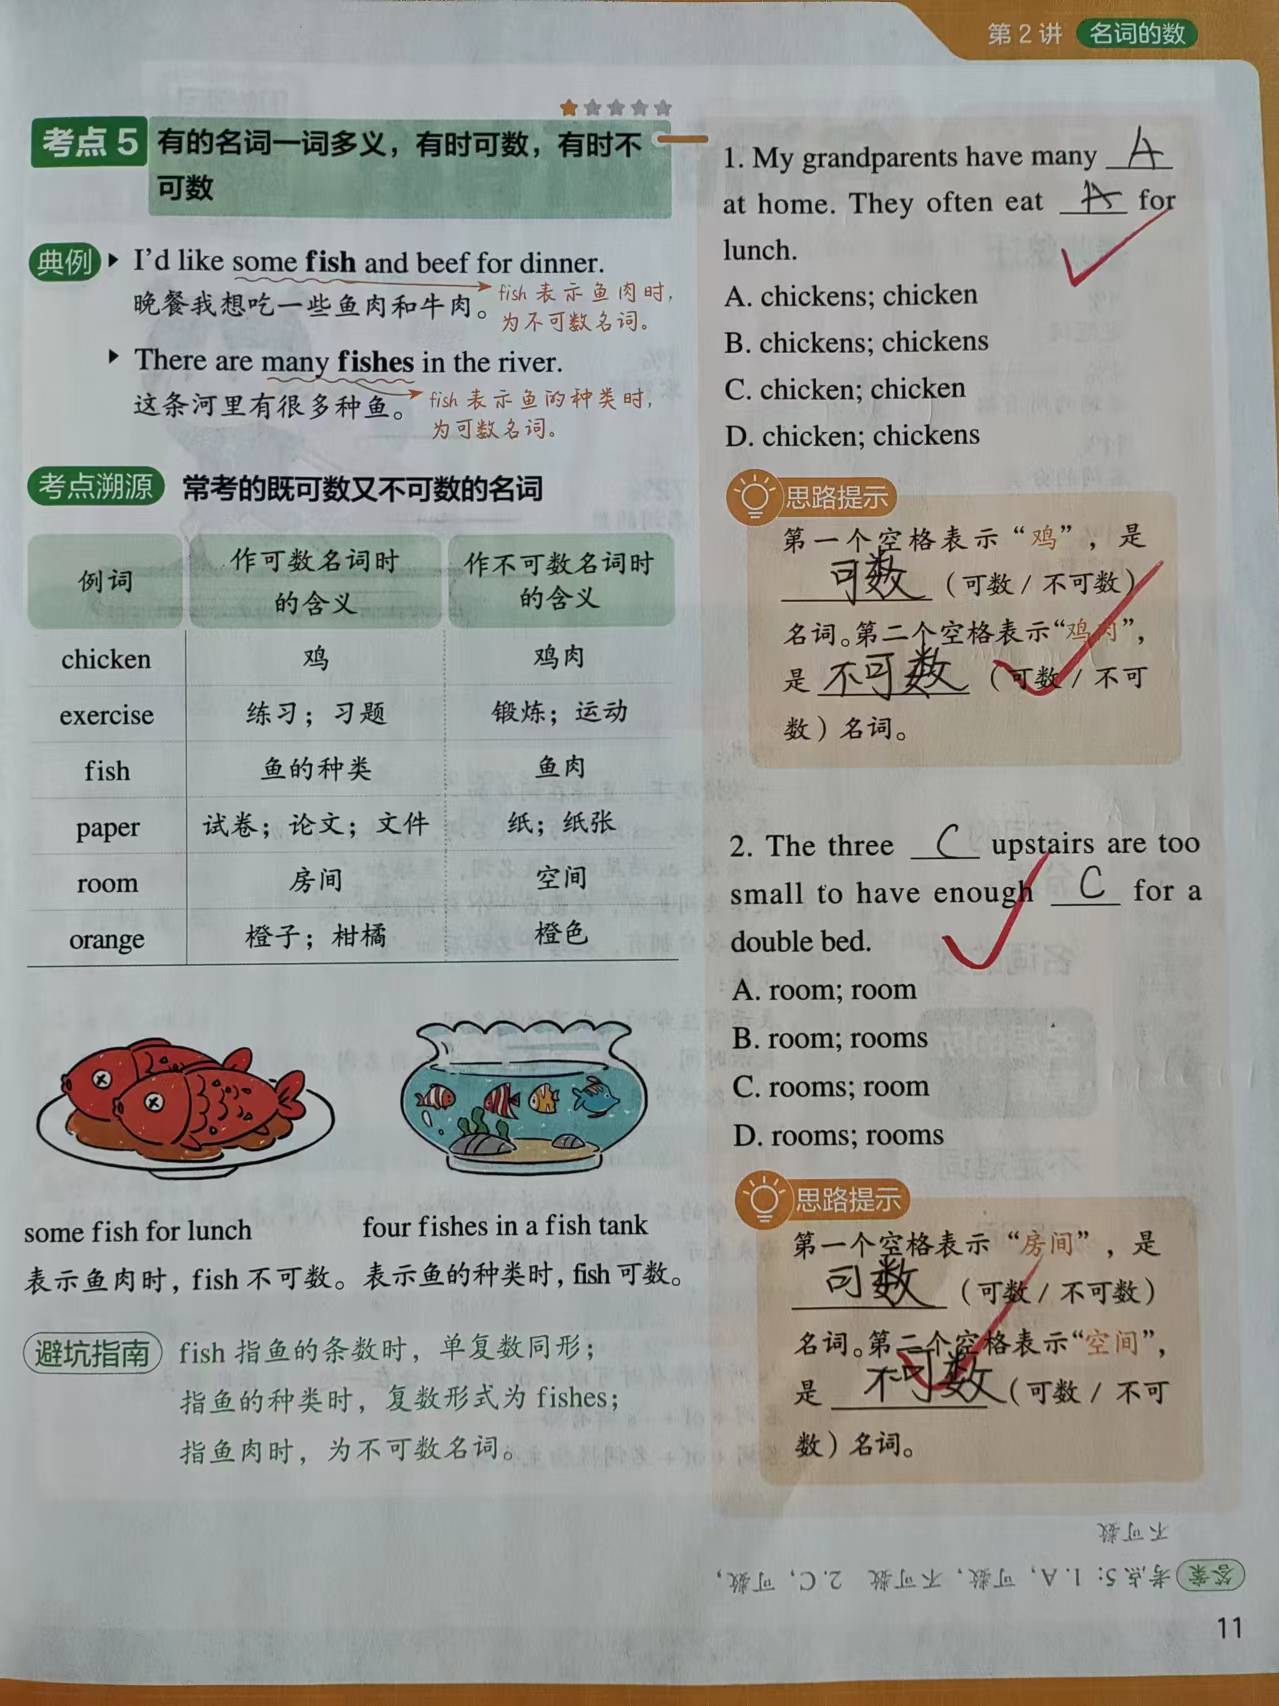 第 2 讲 名词的数
考点 5 有的名词一词多义，有时可数，有时不
可数
典例 I’d like some fish and beef for dinner.
晚餐我想吃一些鱼肉和牛肉。
fish 表示鱼肉时，
为不可数名词。
There are many fishes in the river.
这条河里有很多种鱼。
fish 表示鱼的种类时，
为可数名词。
考点溯源 常考的既可数又不可数的名词
例词 作可数名词时的含义 作不可数名词时的含义
chicken 鸡 鸡肉
exercise 练习；习题 锻炼；运动
fish 鱼的种类 鱼肉
paper 试卷；论文；文件 纸；纸张
room 房间 空间
orange 橙子；柑橘 橙色
some fish for lunch
表示鱼肉时，fish 不可数。
four fishes in a fish tank
表示鱼的种类时，fish 可数。
避坑指南 fish 指鱼的条数时，单复数同形；
指鱼的种类时，复数形式为 fishes；
指鱼肉时，为不可数名词。
1. My grandparents have many A
at home. They often eat A for
lunch.
A. chickens; chicken
B. chickens; chickens
C. chicken; chicken
D. chicken; chickens
思路提示
第一个空格表示“鸡”，是
可数（可数 / 不可数）
名词。第二个空格表示“鸡肉”，
是 不可数（可数 / 不可
数）名词。
2. The three C upstairs are too
small to have enough C for a
double bed.
A. room; room
B. room; rooms
C. rooms; room
D. rooms; rooms
思路提示
第一个空格表示“房间”，是
可数（可数 / 不可数）
名词。第二个空格表示“空间”，
是 不可数（可数 / 不可
数）名词。
答案 考点 5：1. A，可数，不可数 2. C，可数，
不可数
11